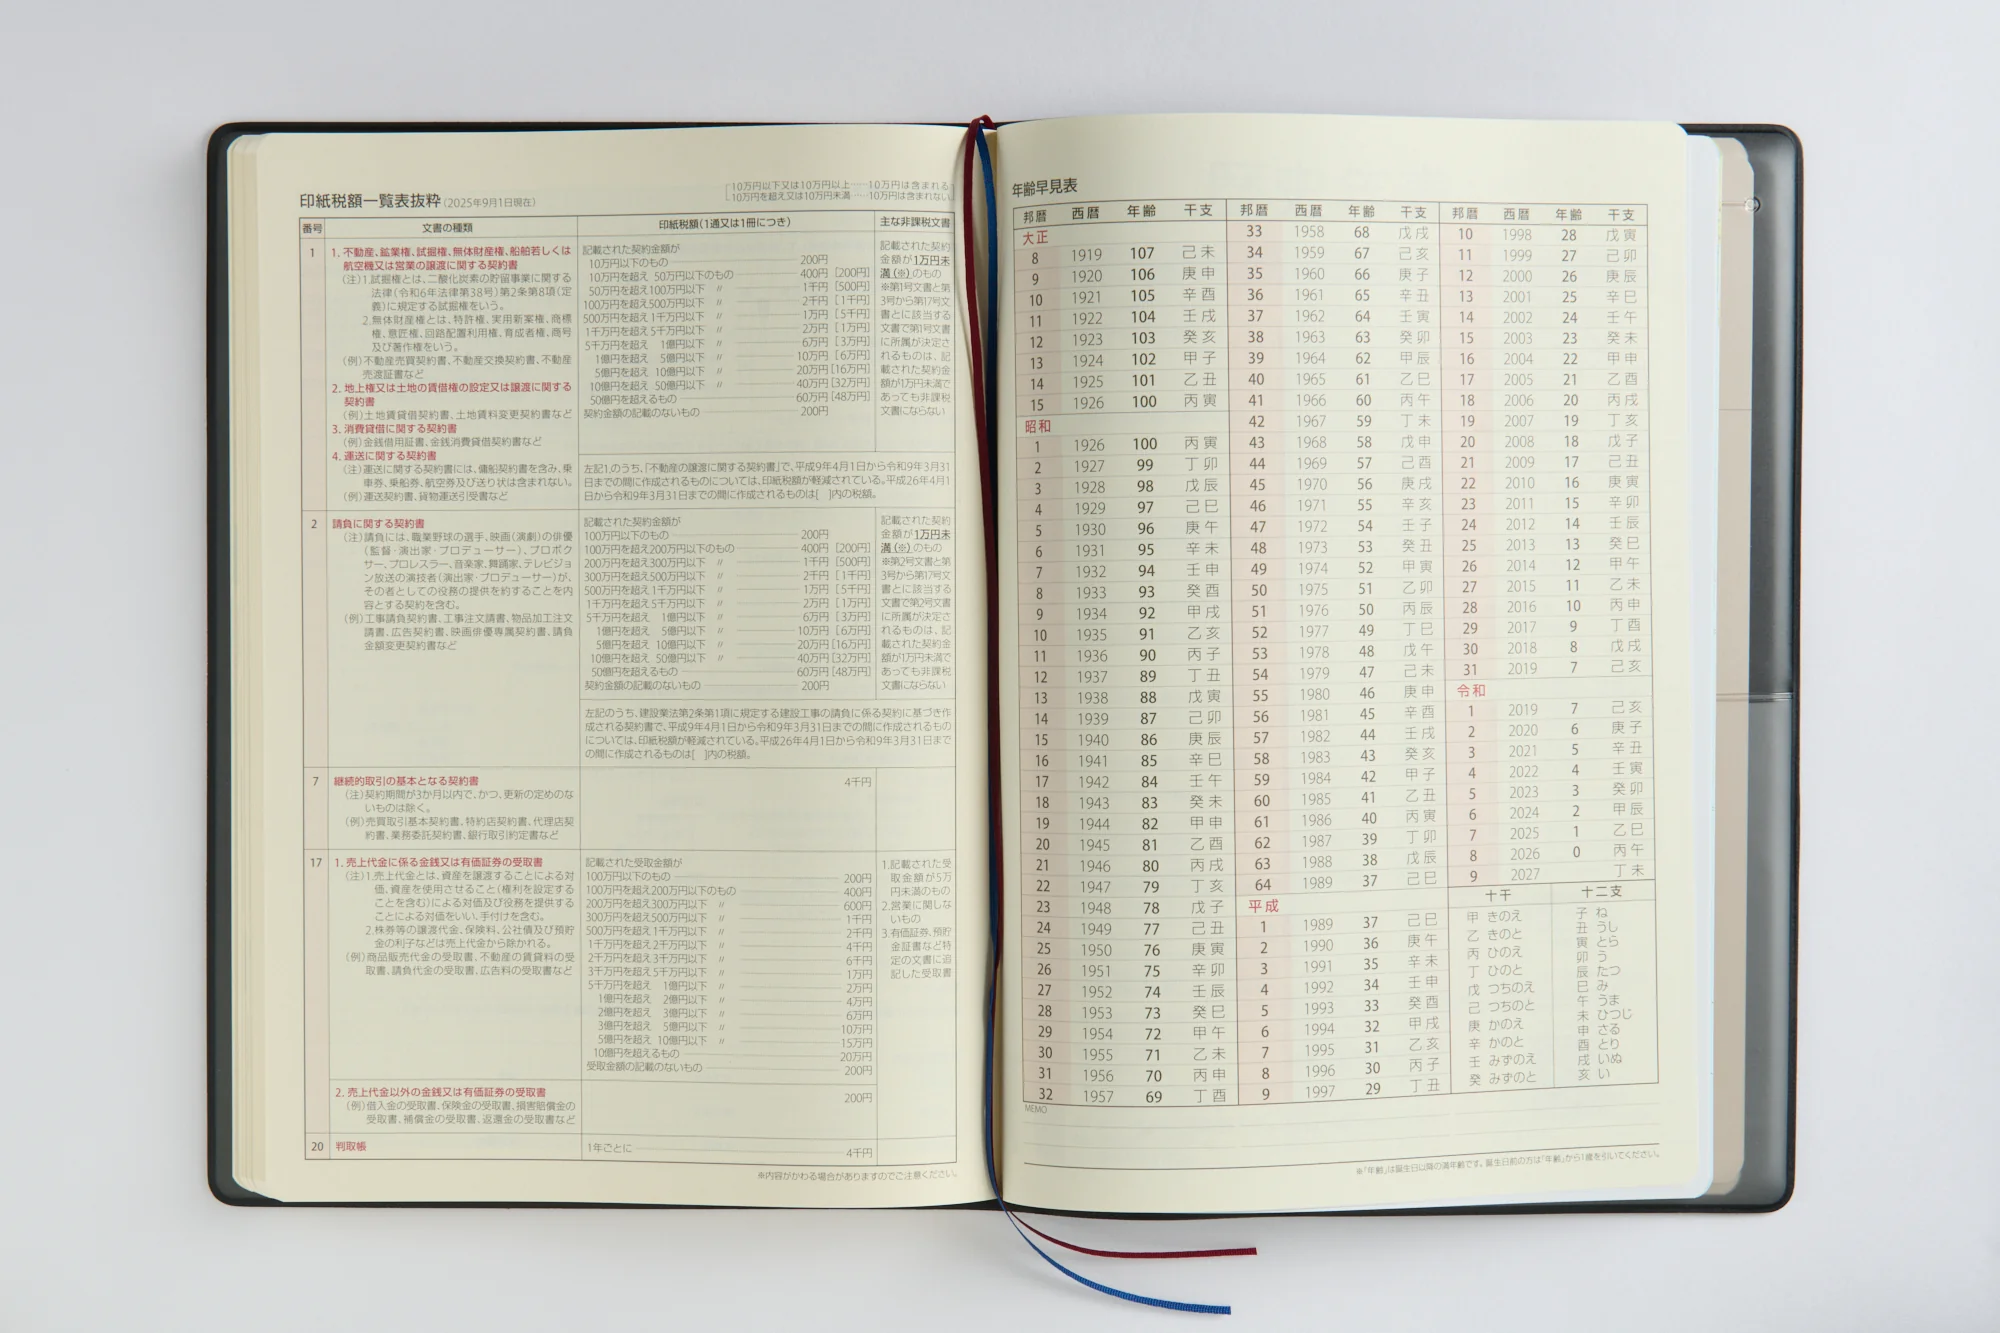 印紙税額一覧表抜粋(2025年9月1日現在)
10万円以下又は10万円以上……10万円は含まれる
10万円を超え又は10万円未満……10万円は含まれない
番号 文書の種類 印紙税額(1通又は1冊につき) 主な非課税文書
1
1. 不動産、鉱業権、試掘権、無体財産権、船舶若しくは
航空機又は営業の譲渡に関する契約書
(注)1.試掘権とは、二酸化炭素の貯留事業に関する
法律(令和6年法律第38号)第2条第8項(定
義)に規定する試掘権をいう。
2.無体財産権とは、特許権、実用新案権、商標
権、意匠権、回路配置利用権、育成者権、商号
及び著作権をいう。
(例)不動産売買契約書、不動産交換契約書、不動産
売渡証書など
2. 地上権又は土地の賃借権の設定又は譲渡に関する
契約書
(例)土地賃貸借契約書、土地賃料変更契約書など
3. 消費貸借に関する契約書
(例)金銭借用証書、金銭消費貸借契約書など
4. 運送に関する契約書
(注)運送に関する契約書には、傭船契約書を含み、乗
車券、乗船券、航空券及び送り状は含まれない。
(例)運送契約書、貨物運送引受書など
記載された契約金額が
10万円以下のもの 200円
10万円を超え 50万円以下のもの 400円 [200円]
50万円を超え100万円以下 〃 1千円 [500円]
100万円を超え500万円以下 〃 2千円 [1千円]
500万円を超え1千万円以下 〃 1万円 [5千円]
1千万円を超え5千万円以下 〃 2万円 [1万円]
5千万円を超え 1億円以下 〃 6万円 [3万円]
1億円を超え 5億円以下 〃 10万円 [6万円]
5億円を超え 10億円以下 〃 20万円 [16万円]
10億円を超え 50億円以下 〃 40万円 [32万円]
50億円を超えるもの 60万円 [48万円]
契約金額の記載のないもの 200円
左記1.のうち、「不動産の譲渡に関する契約書」で、平成9年4月1日から令和9年3月31
日までの間に作成されるものについては、印紙税額が軽減されている。平成26年4月1
日から令和9年3月31日までの間に作成されるものは[ ]内の税額。
記載された契約
金額が1万円未
満(※)のもの
※第1号文書と第
3号から第17号文
書とに該当する
文書で第1号文書
に所属が決定さ
れるものは、記
載された契約金
額が1万円未満で
あっても非課税
文書にならない
2
請負に関する契約書
(注)請負には、職業野球の選手、映画(演劇)の俳優
(監督・演出家・プロデューサー)、プロボク
サー、プロレスラー、音楽家、舞踊家、テレビジョ
ン放送の演技者(演出家・プロデューサー)が、
その者としての役務の提供を約することを内
容とする契約を含む。
(例)工事請負契約書、工事注文請書、物品加工注文
請書、広告契約書、映画俳優専属契約書、請負
金額変更契約書など
記載された契約金額が
100万円以下のもの 200円
100万円を超え200万円以下のもの 400円 [200円]
200万円を超え300万円以下 〃 1千円 [500円]
300万円を超え500万円以下 〃 2千円 [1千円]
500万円を超え1千万円以下 〃 1万円 [5千円]
1千万円を超え5千万円以下 〃 2万円 [1万円]
5千万円を超え 1億円以下 〃 6万円 [3万円]
1億円を超え 5億円以下 〃 10万円 [6万円]
5億円を超え 10億円以下 〃 20万円 [16万円]
10億円を超え 50億円以下 〃 40万円 [32万円]
50億円を超えるもの 60万円 [48万円]
契約金額の記載のないもの 200円
左記のうち、建設業法第2条第1項に規定する建設工事の請負に係る契約に基づき作
成される契約書で、平成9年4月1日から令和9年3月31日までの間に作成されるもの
については、印紙税額が軽減されている。平成26年4月1日から令和9年3月31日まで
の間に作成されるものは[ ]内の税額。
記載された契約
金額が1万円未
満(※)のもの
※第2号文書と第
3号から第17号文
書とに該当する
文書で第2号文書
に所属が決定さ
れるものは、記
載された契約金
額が1万円未満で
あっても非課税
文書にならない
7
継続的取引の基本となる契約書
(注)契約期間が3か月以内で、かつ、更新の定めのな
いものは除く。
(例)売買取引基本契約書、特約店契約書、代理店契
約書、業務委託契約書、銀行取引約定書など
4千円
17
1. 売上代金に係る金銭又は有価証券の受取書
(注)1.売上代金とは、資産を譲渡することによる対
価、資産を使用させること(権利を設定する
ことを含む)による対価及び役務を提供する
ことによる対価をいい、手付けを含む。
2.株券等の譲渡代金、保険料、公社債及び預貯
金の利子などは売上代金から除かれる。
(例)商品販売代金の受取書、不動産の賃貸料の受
取書、請負代金の受取書、広告料の受取書など
記載された受取金額が
100万円以下のもの 200円
100万円を超え200万円以下のもの 400円
200万円を超え300万円以下 〃 600円
300万円を超え500万円以下 〃 1千円
500万円を超え1千万円以下 〃 2千円
1千万円を超え2千万円以下 〃 4千円
2千万円を超え3千万円以下 〃 6千円
3千万円を超え5千万円以下 〃 1万円
5千万円を超え 1億円以下 〃 2万円
1億円を超え 2億円以下 〃 4万円
2億円を超え 3億円以下 〃 6万円
3億円を超え 5億円以下 〃 10万円
5億円を超え 10億円以下 〃 15万円
10億円を超えるもの 20万円
受取金額の記載のないもの 200円
1.記載された受
取金額が5万
円未満のもの
2.営業に関しな
いもの
3.有価証券、預貯
金証書など特
定の文書に追
記した受取書
2. 売上代金以外の金銭又は有価証券の受取書
(例)借入金の受取書、保険金の受取書、損害賠償金の
受取書、補償金の受取書、返還金の受取書など
200円
20 判取帳 1年ごとに 4千円
※内容がかわる場合がありますのでご注意ください。
年齢早見表
邦暦 西暦 年齢 干支
大正
8 1919 107 己未
9 1920 106 庚申
10 1921 105 辛酉
11 1922 104 壬戌
12 1923 103 癸亥
13 1924 102 甲子
14 1925 101 乙丑
15 1926 100 丙寅
昭和
1 1926 100 丙寅
2 1927 99 丁卯
3 1928 98 戊辰
4 1929 97 己巳
5 1930 96 庚午
6 1931 95 辛未
7 1932 94 壬申
8 1933 93 癸酉
9 1934 92 甲戌
10 1935 91 乙亥
11 1936 90 丙子
12 1937 89 丁丑
13 1938 88 戊寅
14 1939 87 己卯
15 1940 86 庚辰
16 1941 85 辛巳
17 1942 84 壬午
18 1943 83 癸未
19 1944 82 甲申
20 1945 81 乙酉
21 1946 80 丙戌
22 1947 79 丁亥
23 1948 78 戊子
24 1949 77 己丑
25 1950 76 庚寅
26 1951 75 辛卯
27 1952 74 壬辰
28 1953 73 癸巳
29 1954 72 甲午
30 1955 71 乙未
31 1956 70 丙申
32 1957 69 丁酉
邦暦 西暦 年齢 干支
33 1958 68 戊戌
34 1959 67 己亥
35 1960 66 庚子
36 1961 65 辛丑
37 1962 64 壬寅
38 1963 63 癸卯
39 1964 62 甲辰
40 1965 61 乙巳
41 1966 60 丙午
42 1967 59 丁未
43 1968 58 戊申
44 1969 57 己酉
45 1970 56 庚戌
46 1971 55 辛亥
47 1972 54 壬子
48 1973 53 癸丑
49 1974 52 甲寅
50 1975 51 乙卯
51 1976 50 丙辰
52 1977 49 丁巳
53 1978 48 戊午
54 1979 47 己未
55 1980 46 庚申
56 1981 45 辛酉
57 1982 44 壬戌
58 1983 43 癸亥
59 1984 42 甲子
60 1985 41 乙丑
61 1986 40 丙寅
62 1987 39 丁卯
63 1988 38 戊辰
64 1989 37 己巳
平成
1 1989 37 己巳
2 1990 36 庚午
3 1991 35 辛未
4 1992 34 壬申
5 1993 33 癸酉
6 1994 32 甲戌
7 1995 31 乙亥
8 1996 30 丙子
9 1997 29 丁丑
邦暦 西暦 年齢 干支
10 1998 28 戊寅
11 1999 27 己卯
12 2000 26 庚辰
13 2001 25 辛巳
14 2002 24 壬午
15 2003 23 癸未
16 2004 22 甲申
17 2005 21 乙酉
18 2006 20 丙戌
19 2007 19 丁亥
20 2008 18 戊子
21 2009 17 己丑
22 2010 16 庚寅
23 2011 15 辛卯
24 2012 14 壬辰
25 2013 13 癸巳
26 2014 12 甲午
27 2015 11 乙未
28 2016 10 丙申
29 2017 9 丁酉
30 2018 8 戊戌
31 2019 7 己亥
令和
1 2019 7 己亥
2 2020 6 庚子
3 2021 5 辛丑
4 2022 4 壬寅
5 2023 3 癸卯
6 2024 2 甲辰
7 2025 1 乙巳
8 2026 0 丙午
9 2027 丁未
十干
甲 きのえ
乙 きのと
丙 ひのえ
丁 ひのと
戊 つちのえ
己 つちのと
庚 かのえ
辛 かのと
壬 みずのえ
癸 みずのと
十二支
子 ね
丑 うし
寅 とら
卯 う
辰 たつ
巳 み
午 うま
未 ひつじ
申 さる
酉 とり
戌 いぬ
亥 い
MEMO
※「年齢」は誕生日以降の満年齢です。誕生日前の方は「年齢」から1歳を引いてください。